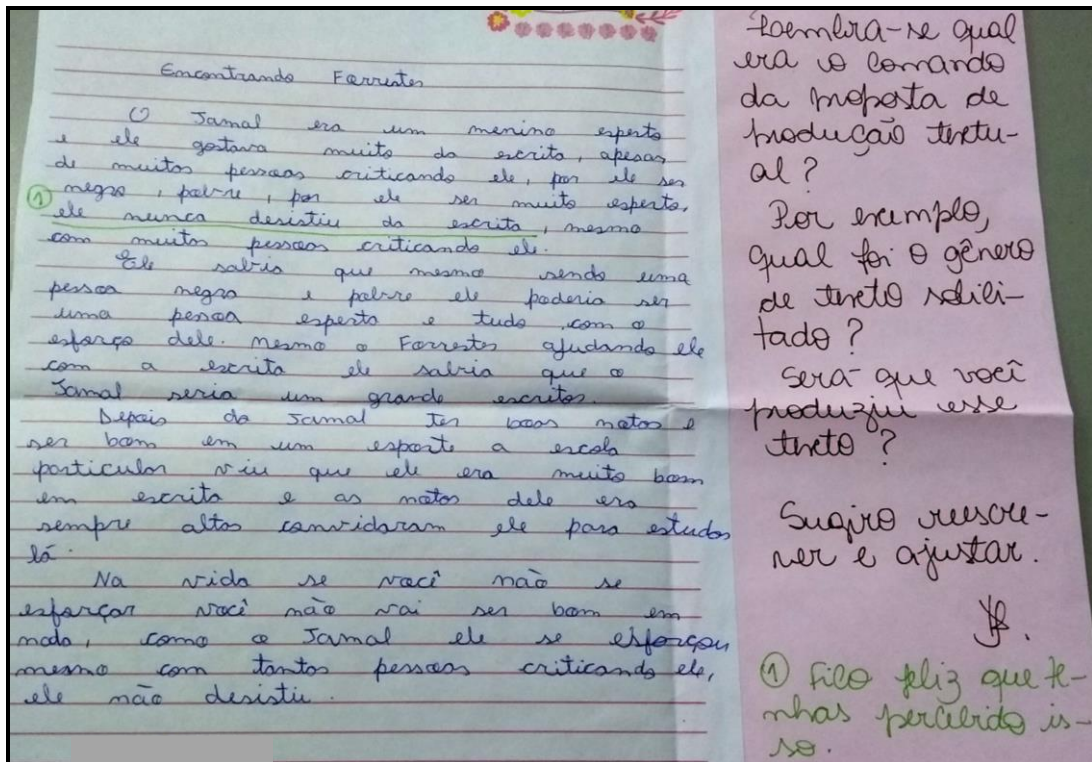 Encontrando Forrester
O Jamal era um menino esperto
e ele gostava muito da escrita, apesar
de muitas pessoas criticando ele, por ele ser
negro, pobre, por ele ser muito esperto,
ele nunca desistiu da escrita, mesmo
com muitas pessoas criticando ele.
Ele sabia que mesmo sendo uma
pessoa negra e pobre ele poderia ser
uma pessoa esperta e tudo com o
esforço dele. Mesmo o Forrester ajudando ele
com a escrita ele sabia que o
Jamal seria um grande escritor.
Depois do Jamal ter boas notas e
ser bom em um esporte a escola
particular viu que ele era muito bom
em escrita e as notas dele era
sempre altas convidaram ele para estudar
lá.
Na vida se você não se
esforçar você não vai ser bom em
nada, como o Jamal ele se esforçou
mesmo com tantas pessoas criticando ele,
ele não desistiu.
①
Lembra-se qual
era o comando
da proposta de
produção textu-
al?
Por exemplo,
qual foi o gênero
de texto solici-
tado?
Será que você
produziu esse
texto?
Sugiro reescre-
ver e ajustar.
① Fico feliz que te-
nhas percebido is-
so.